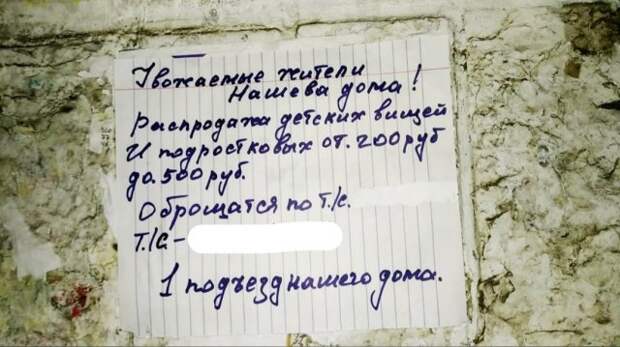 Уважаемые жители
Нашева дома!
Распродажа детских вищей
И подростковых от. 200 руб
до. 500 руб.
Оброщатся по Т./с.
Т./с. -
1 подъезд нашего дома.